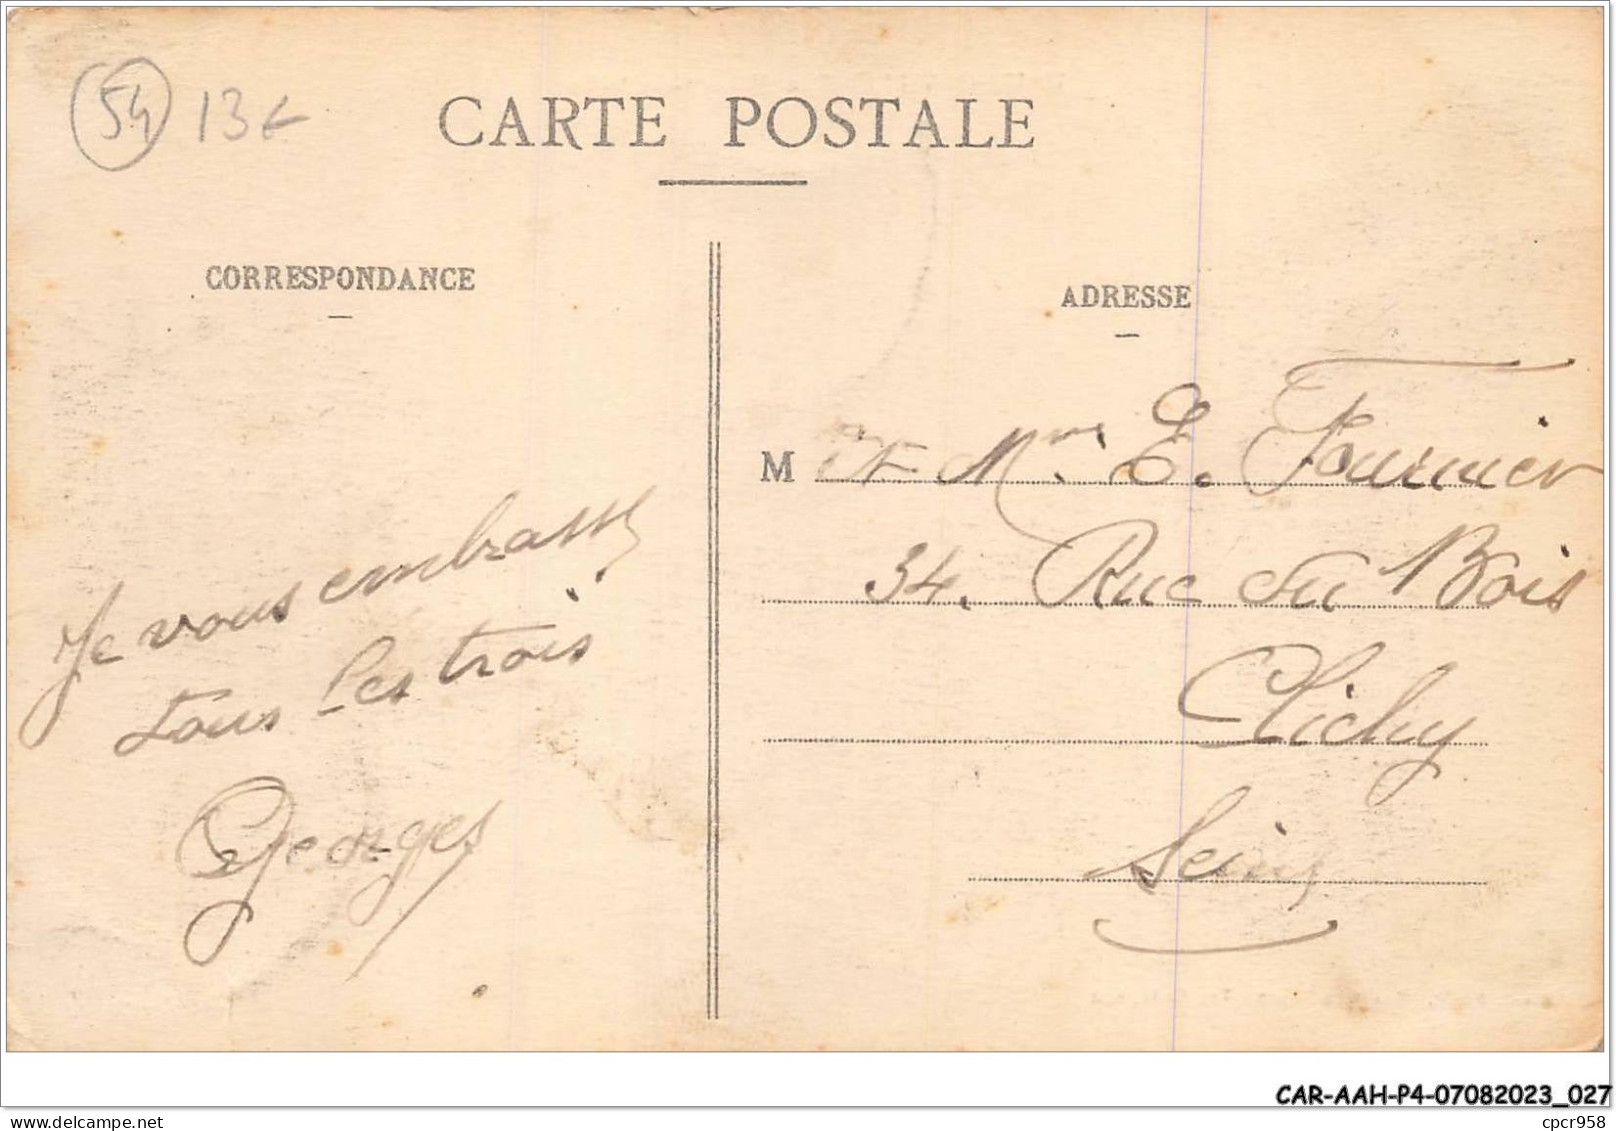 54 13€
CARTE POSTALE
CORRESPONDANCE
ADRESSE
Je vous embrasse
tous les trois.
Georges
M et Mme E. Fournier
34. Rue du Bois
Clichy
Seine
CAR-AAH-P4-07082023_027
www.delcampe.net
cpcr958